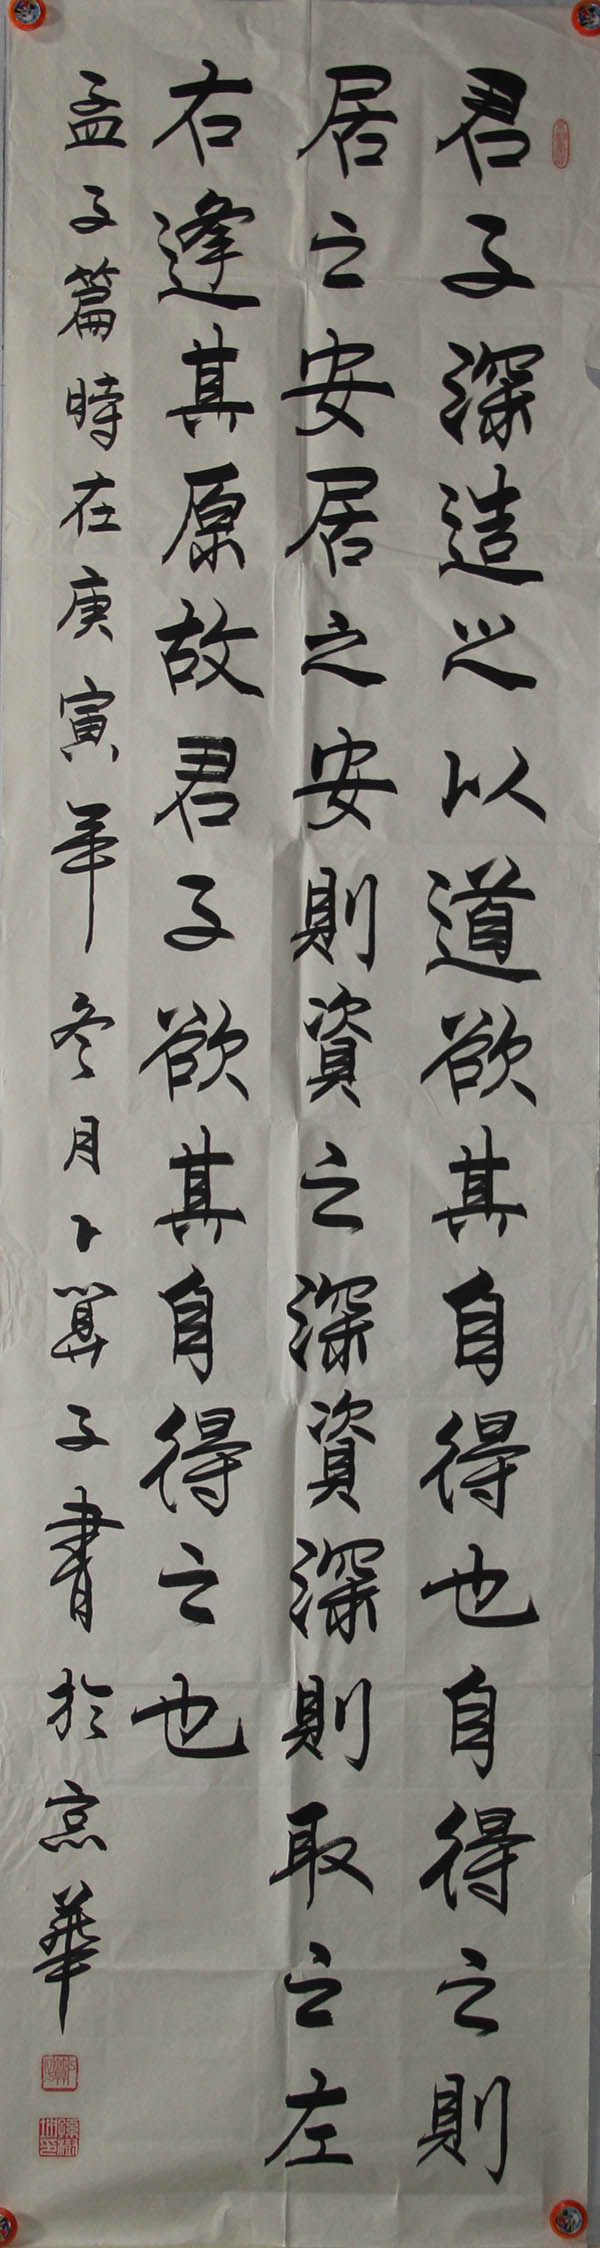 君子深造之以道欲其自得也自得之則
居之安居之安則資之深資深則取之左
右逢其原故君子欲其自得之也
孟子篇時在庚寅年冬月卜算子書於京華